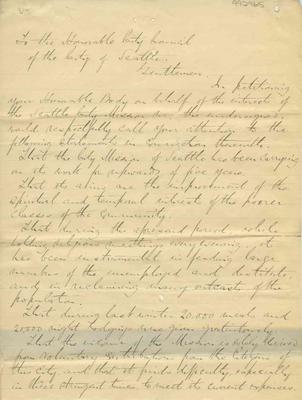 To the Honorable City Council
of the City of Seattle.
Gentlemen.
In petitioning
your Honorable Body on behalf of the interests of
the Seattle City Mission
would respectfully call your attention to the
following statements in connection therewith.
That the City Mission of Seattle has been carrying
on its work for upwards of five years
That its aims are the improvement of the
spiritual and temporal interests of the poorer
classes of the Community.
That during the aforesaid period, while
holding religious meetings every evening, it
has been instrumental in feeding large
number of the unemployed and destitute,
and, in reclaiming many outcasts of the
population.
That during last winter 20.000 meals and
20.000 night lodgings were given gratuitously.
That the income of the Mission is solely derived
from voluntary contributions from the Citizens of
this City, and that it finds difficulty, especially
in these stringent times to meet its current expenses.